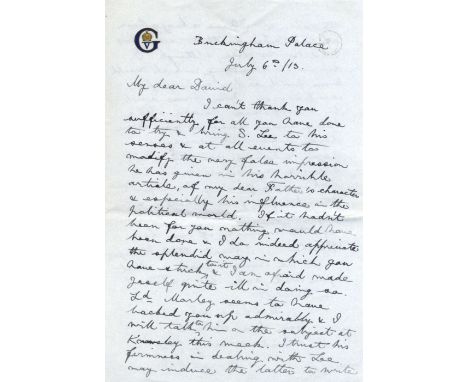 G V
Buckingham Palace
July 6th/13.
My dear David
I can't thank you
sufficiently, for all you have done
to try & bring S. Lee to his
senses & at all events to
modify the very false impression
he has given in his horrible
article, of my dear Father's character
& especially his influence in the
political world. If it hadn't
been for you nothing would have
been done & I do indeed appreciate
the splendid way in which you
have stuck to it & I am afraid made
yourself quite ill in doing so.
Ld. Morley seems to have
backed you up admirably & I
will talk to him on the subject at
Knowsley this week. I trust his
firmness in dealing with Lee
may induce the latter to write